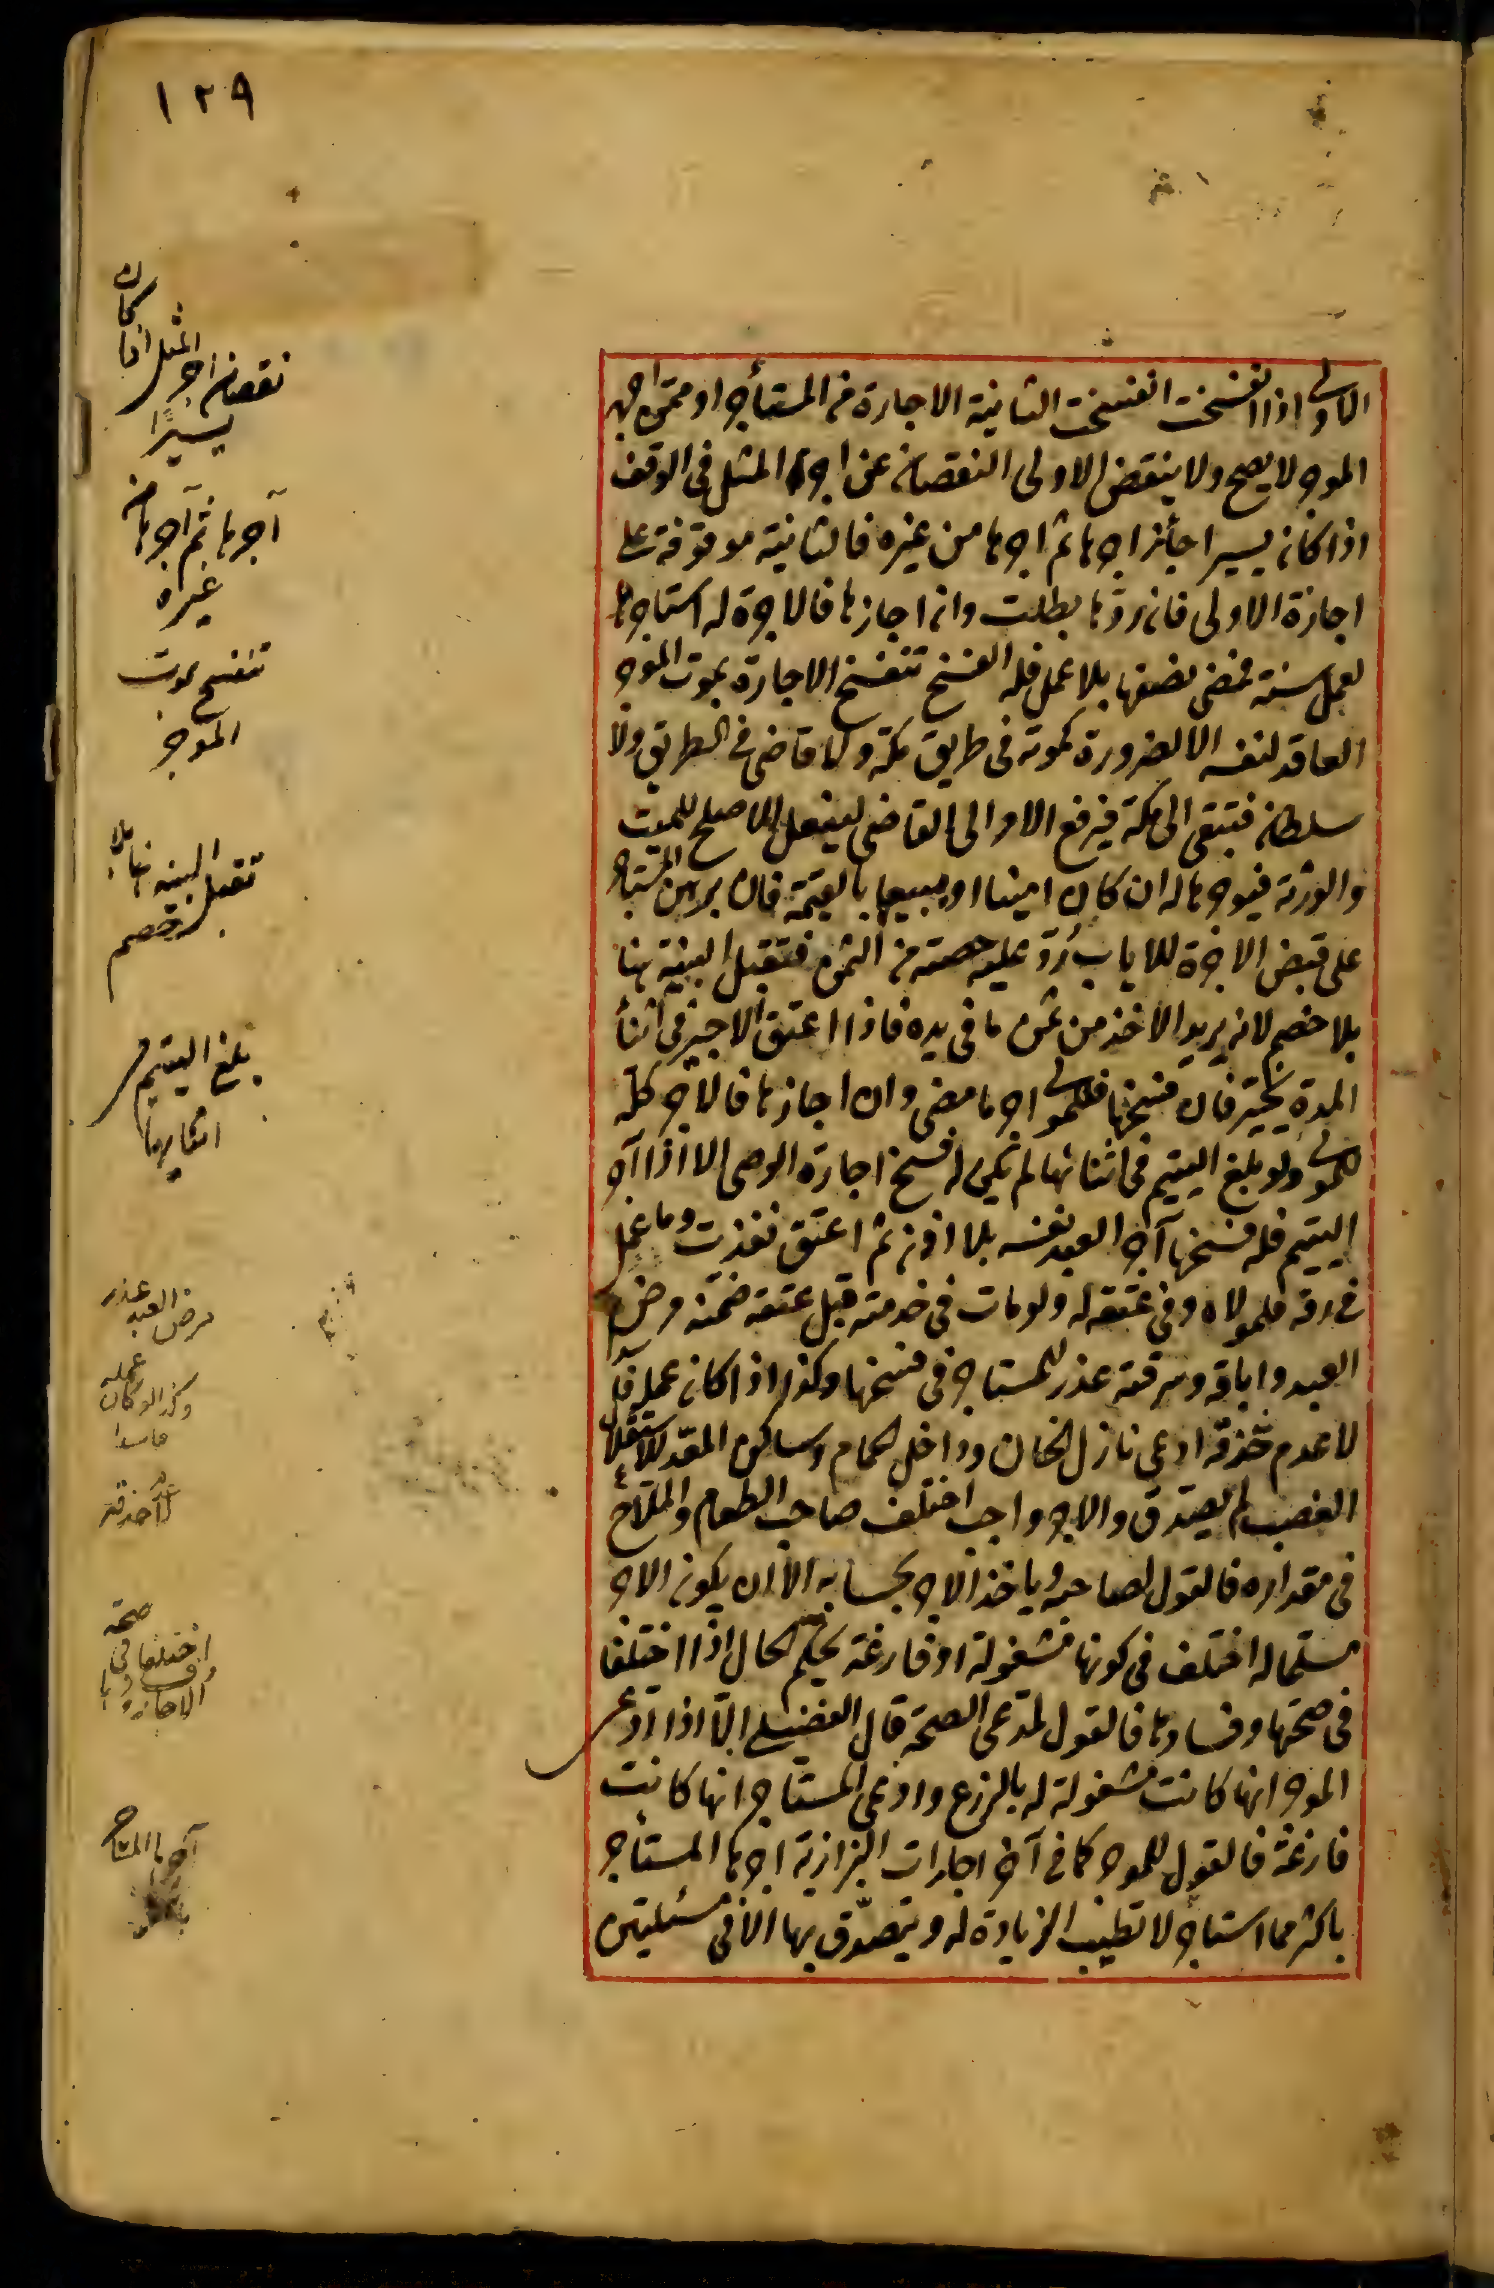 ١٢٩
الاولى اذا انفسخت انفسخت الثانية الاجارة من المستأجر او ممن آجر
الموجر لا يصح ولا ينقض الاولى النقصان عن اجرة المثل فى الوقف
اذا كان يسيرا جائز اجرها ثم اجرها من غيره فالثانية موقوفة على
اجازة الاولى فان ردّها بطلت وان اجازها فالاجرة له استاجره
لعمل سنة فمضى نصفها بلا عمل فله الفسخ تنفسخ الاجارة بموت الموجر
العاقد لنفسه الا لضرورة كموته فى طريق مكة ولا قاضى فى الطريق ولا
سلطان فتبقى الى مكة فيرفع الامر الى القاضى ليفعل الاصلح للميت
والورثة فيوجرها له ان كان امينا او يبيعها بالقيمة فان برهن المستاجر
على قبض الاجرة للاياب رُدّ عليه حصته من الثمن فتقبل البينة هنا
بلا خصم لانه يريد الاخذ من ثمن ما فى يده فاذا اعتق الاجير فى اثنأ
المدة يخيّر فان فسخها فللمولى اجر ما مضى وان اجازها فالاجر كلّه
للمولى ولو بلغ اليتيم فى اثنائها لم يكن له فسخ اجارة الوصى الا اذا آجر
اليتيم فله فسخها آجر العبد نفسه بلا اذن ثم اعتق نفذت وما عمل
فى رقه فلمولاه وفى عتقه له ولو مات فى خدمته قبل عتقه ضمنه مرض
العبد واباقه وسرقته عذر للمستاجر فى فسخها وكذا اذا كان عمله فاسدا
لا عدم حذقه ادعى نازل الخان وداخل الحمام وساكن المعدّ للاستغلال
الغصب لم يصدّق والاجر واجب اختلف صاحب الطعام والملّاح
فى مقداره فالقول لصاحبه وياخذ الاجر بحسابه الا ان يكون الاجر
مسلما له اختلف فى كونها مشغولة او فارغة يحكّم الحال اذا اختلفا
فى صحتها وفسادها فالقول لمدعى الصحة قال الفضلى الّا اذا ادعى
الموجر انها كانت مشغولة له بالزرع وادعى المستاجر انها كانت
فارغة فالقول للموجر كما فى آخر اجارات البزازية اجرها المستأجر
باكثر مما استاجر لا تطيب الزيادة له ويتصدّق بها الا فى مسئلتين
نقصان اجر المثل اذا كان
يسيرًا
آجرها ثم آجرها من
غيره
تنفسخ بموت
الموجر
تقبل البينة هنا بلا
خصم
بلغ اليتيم فى
اثنائها
مرض العبد عذر
وكذا لو كان عمله
فاسدا
لا حذقه
اختلفا فى صحة
الاجارة وفسادها
آجرها المستاجر